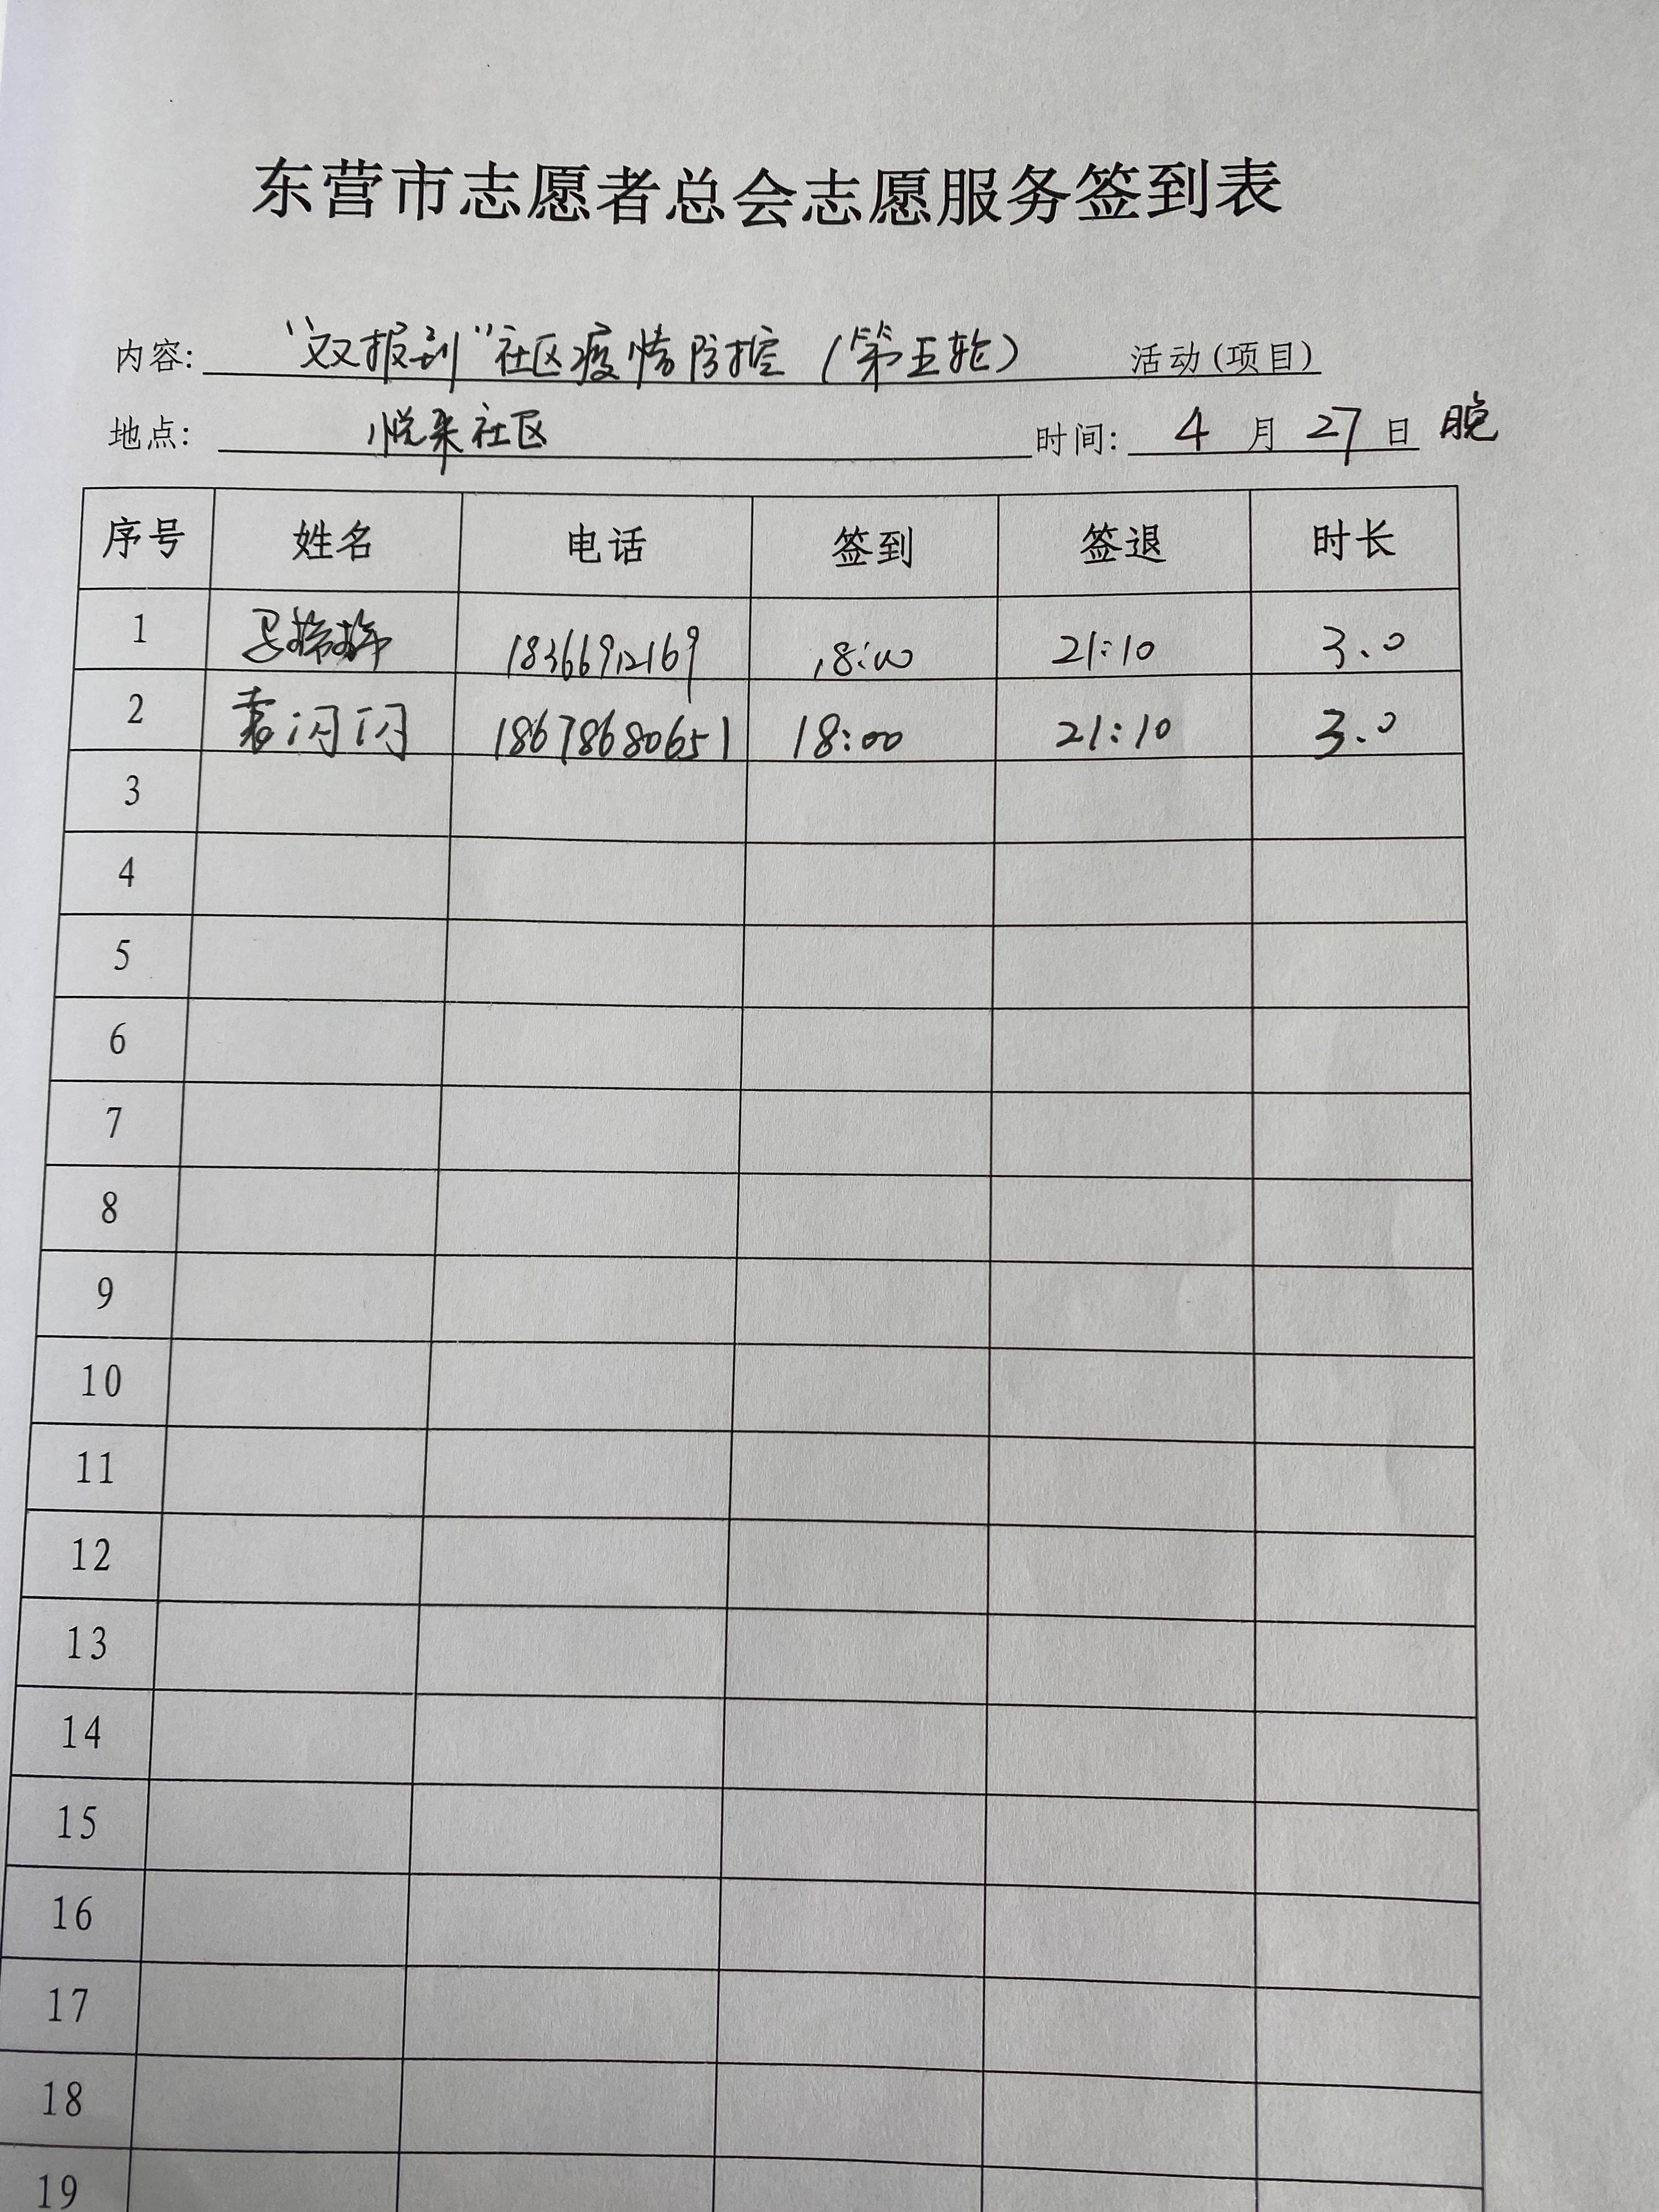 东营市志愿者总会志愿服务签到表
内容: "双报到"社区疫情防控（第五轮） 活动(项目)
地点: 悦来社区 时间: 4 月 27 日 晚
序号 姓名 电话 签到 签退 时长
1 18366912169 18:00 21:10 3.0
2 袁闪闪 18678680651 18:00 21:10 3.0
3
4
5
6
7
8
9
10
11
12
13
14
15
16
17
18
19